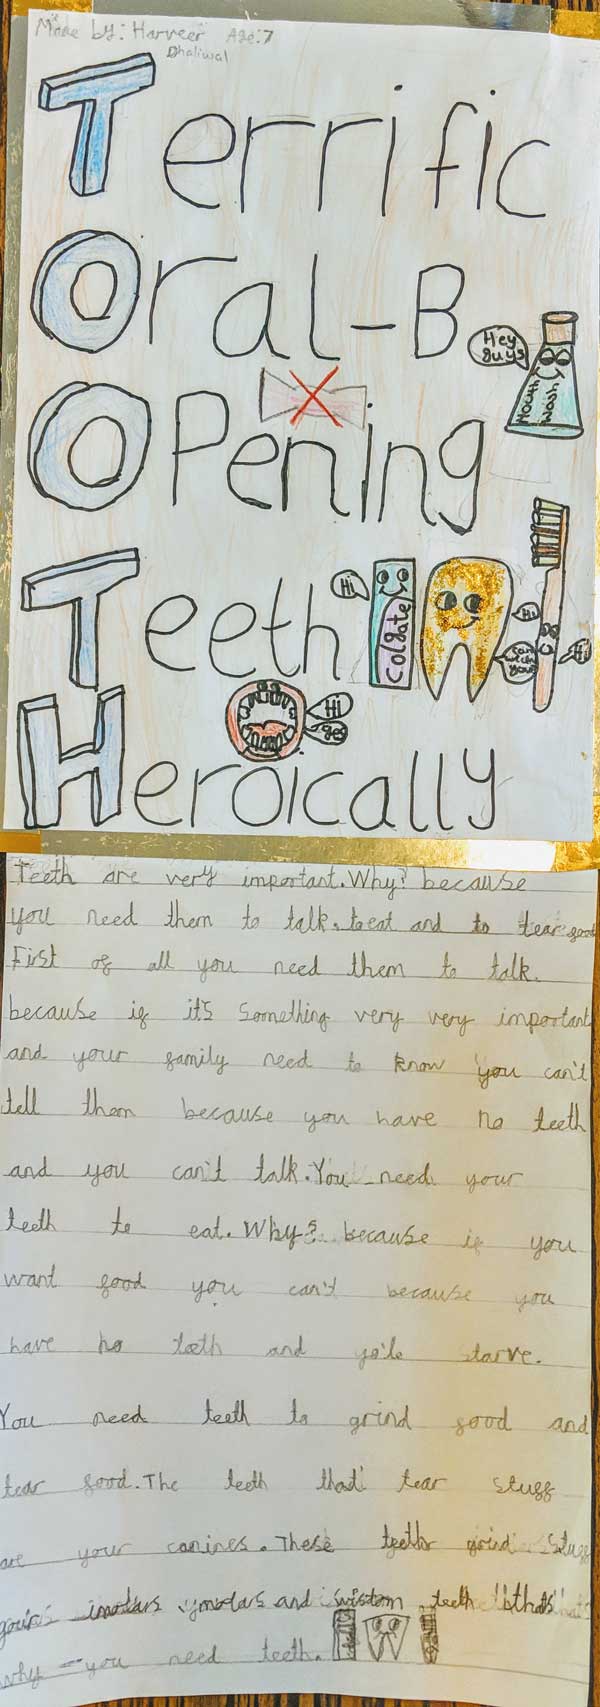 Made by: Harveer Age: 7
Dhaliwal
Terrific
Oral-B
Hey guys
Mouth wash
Opening
Teeth
Hi
Colgate
Hi
Hi
Hi
yes
Heroically
Teeth are very important. Why? because
you need them to talk, to eat and to tear food
First of all you need them to talk.
because if it's Something very very important
and your family need to know you can't
tell them because you have no teeth
and you can't talk. You need your
teeth to eat. Why? because if you
want food you can't because you
have no teeth and yo'le starve.
You need teeth to grind food and
tear food. The teeth that tear stuff
are your canines. These teeth grind stuff
your molars and wistom teeth thats
why you need teeth.